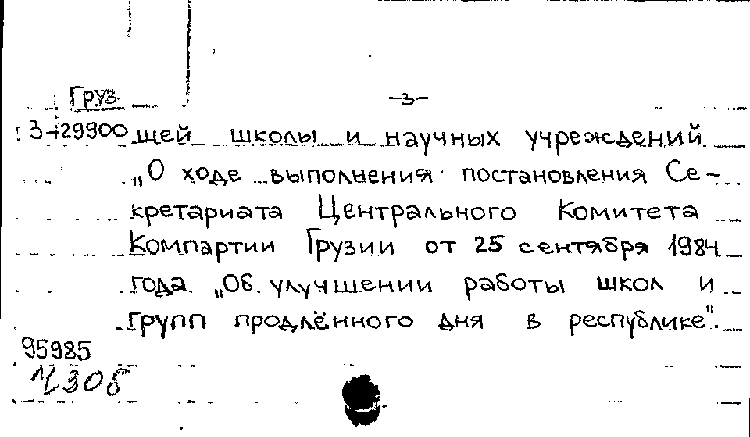 Груз. -3-
3-29900 щей школы и научных учреждений
„О ходе выполнения постановления Се-
кретариата Центрального Комитета
Компартии Грузии от 25 сентября 1984
года „Об улучшении работы школ и
групп продлённого дня в республике".
95985